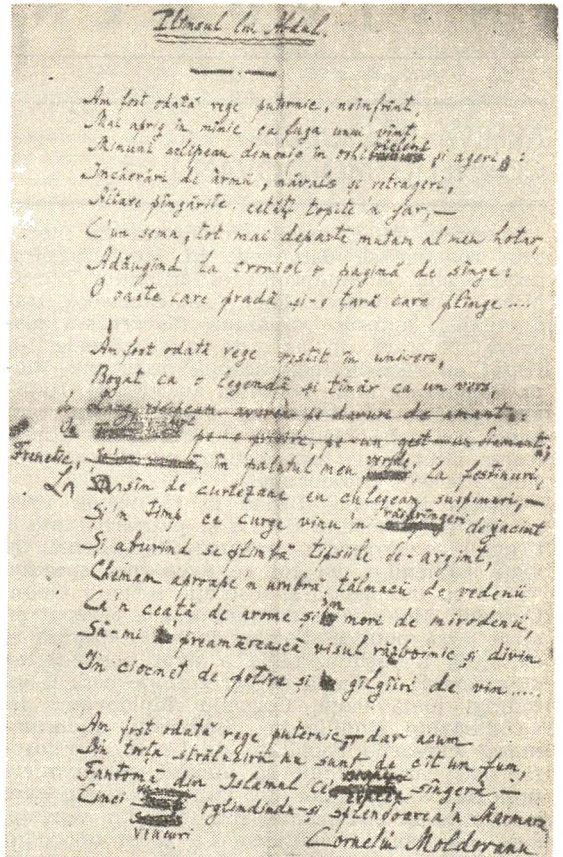 Plînsul lui Abdul.
Am fost odată rege puternic, neînfrînt,
Mai aprig în mînie ca fuga unui vînt,
Minuni sclipeau demonic în ochi violenți și ageri:
Încăerări de armă, năvale și retrageri,
Altare pîngărite, cetăți topite'n jar, —
C'un semn, tot mai departe mutam al meu hotar,
Adăugînd la cronici o pagină de sînge:
O oaste care pradă și-o țară care plînge ....
Am fost odată rege vestit în univers,
Bogat ca o legendă și tînăr ca un vers,
risipeam averea pe daruri de amant:
pe-o privire, pe un gest un diamant,
Frenetic, în palatul meu verde, la festinuri,
La sîn de curtezane eu culegeam suspinuri, —
Și'n timp ce curge vinu'n răsfrîngeri de jacint
Și aburind se plimbă tipsiile de-argint,
Chemam aproape'n umbră tălmacii de vedenii
Ca'n ceață de arome și'n nori de mirodenii,
Să-mi preamărească visul războinic și divin
În ciocnet de potire și gîlgîiri de vin .....
Am fost odată rege puternic, — dar acum
Din toată strălucirea nu sunt de cît un fum,
Fantomă din Islamul ce sîngeră —
Cinci vincuri oglindindu-și splendoarea'n Marmara
Corneliu Moldovanu